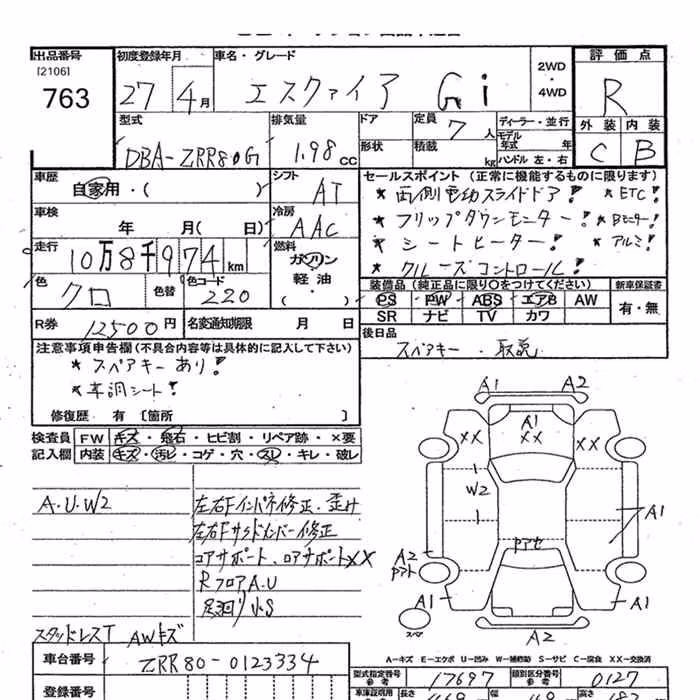 出品番号 初度登録年月 車名・グレード 評価点
[2106]
763 27 4月 エスクァイア Gi 2WD・4WD R
型式 排気量 ドア 定員 ディーラー・並行 外装 内装
DBA-ZRR80G 1.98cc 7人 モデル年式 年
形状 積載 kg ハンドル 左・右 C B
車歴 シフト セールスポイント(正常に機能するものに限ります)
自家用・( ) AT ★両側電動スライドドア! ★ETC!
車検 冷房 ★フリップダウンモニター! ★Bモニター!
年 月( 日) AAC ★シートヒーター! ★アルミ!
走行 燃料 ★クルーズコントロール!
10万8千974km ガソリン
軽油・( )
色 色替 色コード 装備品(純正品に限り○をつけてください) 新車保証書
クロ 220 PS PW ABS エアB AW 有・無
SR ナビ TV カワ
R券 12500円 名変通知期限 月 日 後日品
スペアキー・取説
注意事項申告欄(不具合内容等は具体的に記入して下さい)
★スペアキーあり!
★革調シート!
修復歴 有 [箇所 ]
検査員 FW キズ・飛石・ヒビ割・リペア跡・×要
記入欄 内装 キズ・汚レ・コゲ・穴・スレ・キレ・破レ
A.U.W2 左右Fインパネ修正.歪み
左右Fサイドメンバー修正
コアサポート、ロアサポートXX
RフロアA.U
足廻り小S
スタッドレスT AWキズ
A1 A2
A1
XX XX
W2
A1
A2
A1 A1
スペア
A2
A-キズ E-エクボ U-凹み W-補修跡 S-サビ C-腐食 XX-交換済
車台番号 ZRR80-0123334
型式指定番号 参考 17697 類別区分番号 参考 0127
登録番号
長さ 幅 高さ